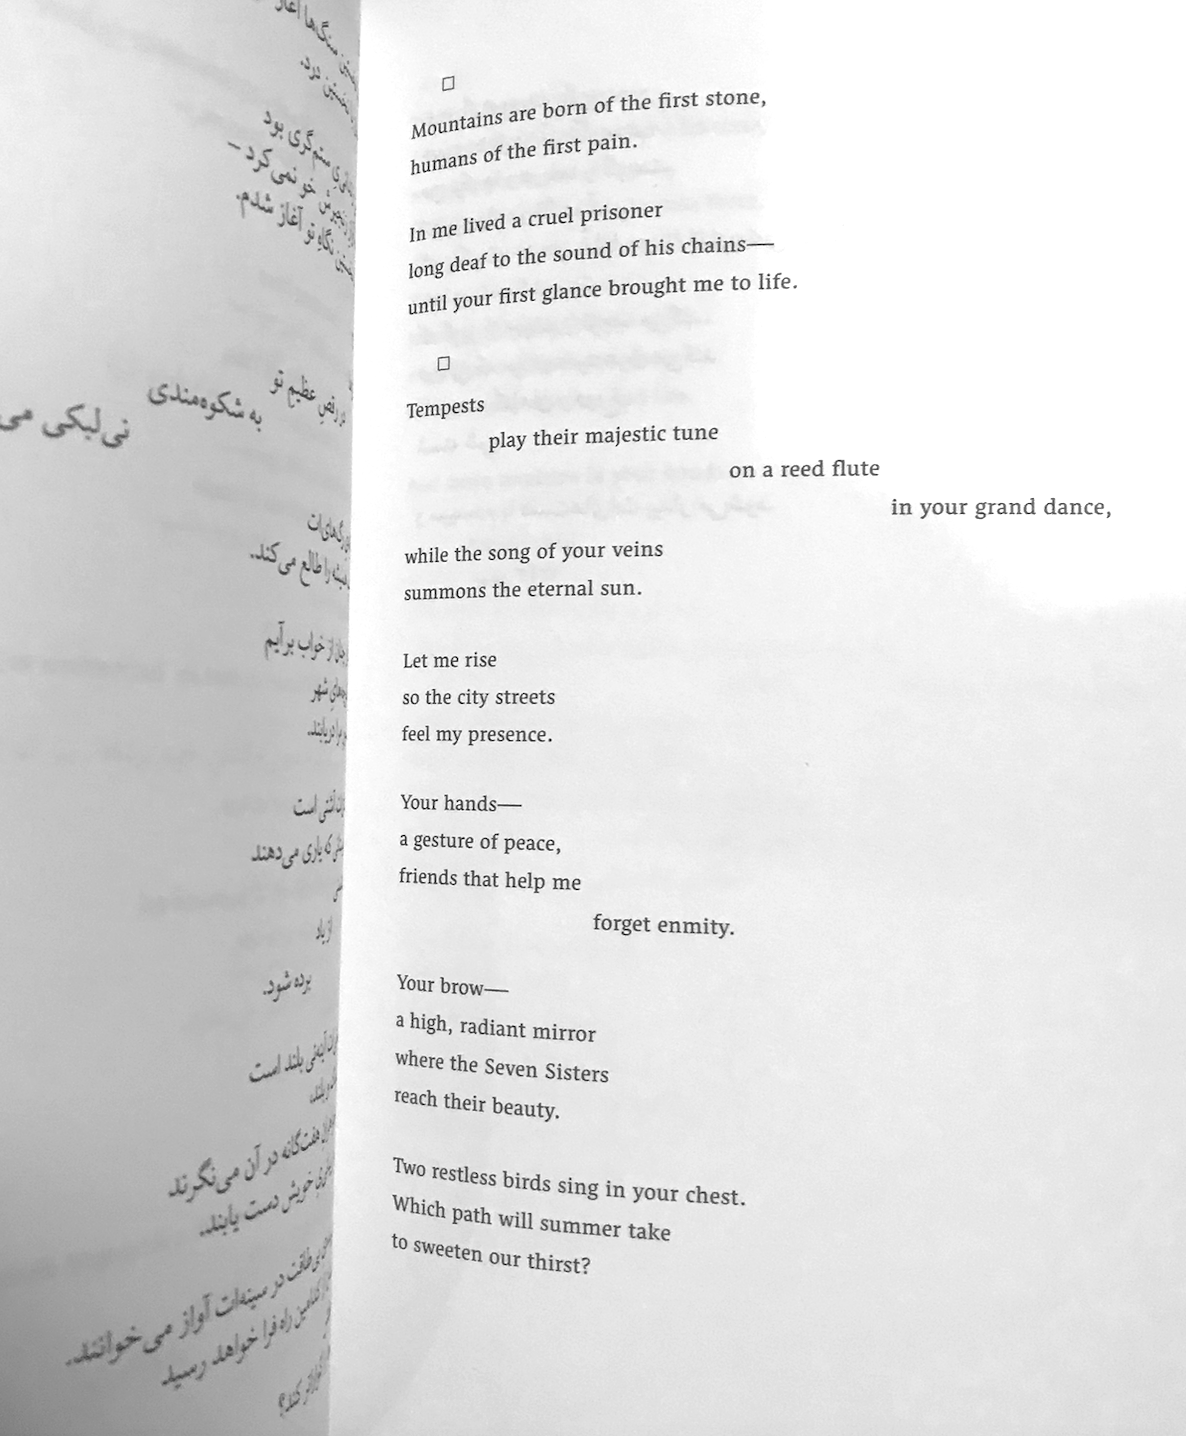 Mountains are born of the first stone,
humans of the first pain.
In me lived a cruel prisoner
long deaf to the sound of his chains—
until your first glance brought me to life.
Tempests
play their majestic tune
on a reed flute
in your grand dance,
while the song of your veins
summons the eternal sun.
Let me rise
so the city streets
feel my presence.
Your hands—
a gesture of peace,
friends that help me
forget enmity.
Your brow—
a high, radiant mirror
where the Seven Sisters
reach their beauty.
Two restless birds sing in your chest.
Which path will summer take
to sweeten our thirst?
سنگ‌ها
درد.
ستم‌گری بود
خو نمی‌کرد –
نگاهِ تو آغاز شدم.
رقصِ عظیمِ تو
به شکوه‌مندی
نی‌لبکی می
رگ‌های‌ات
را طالع می‌کند.
از خواب برآیم
شهر
دریابند.
است
که یاری می‌دهند
از یاد
برده شود.
بلند است
بلند،
هفت‌گانه در آن می‌نگرند
خویش دست یابند.
بی‌طاقت در سینه‌ات آواز می‌خوانند.
کدامین راه فرا خواهد رسید
کند؟